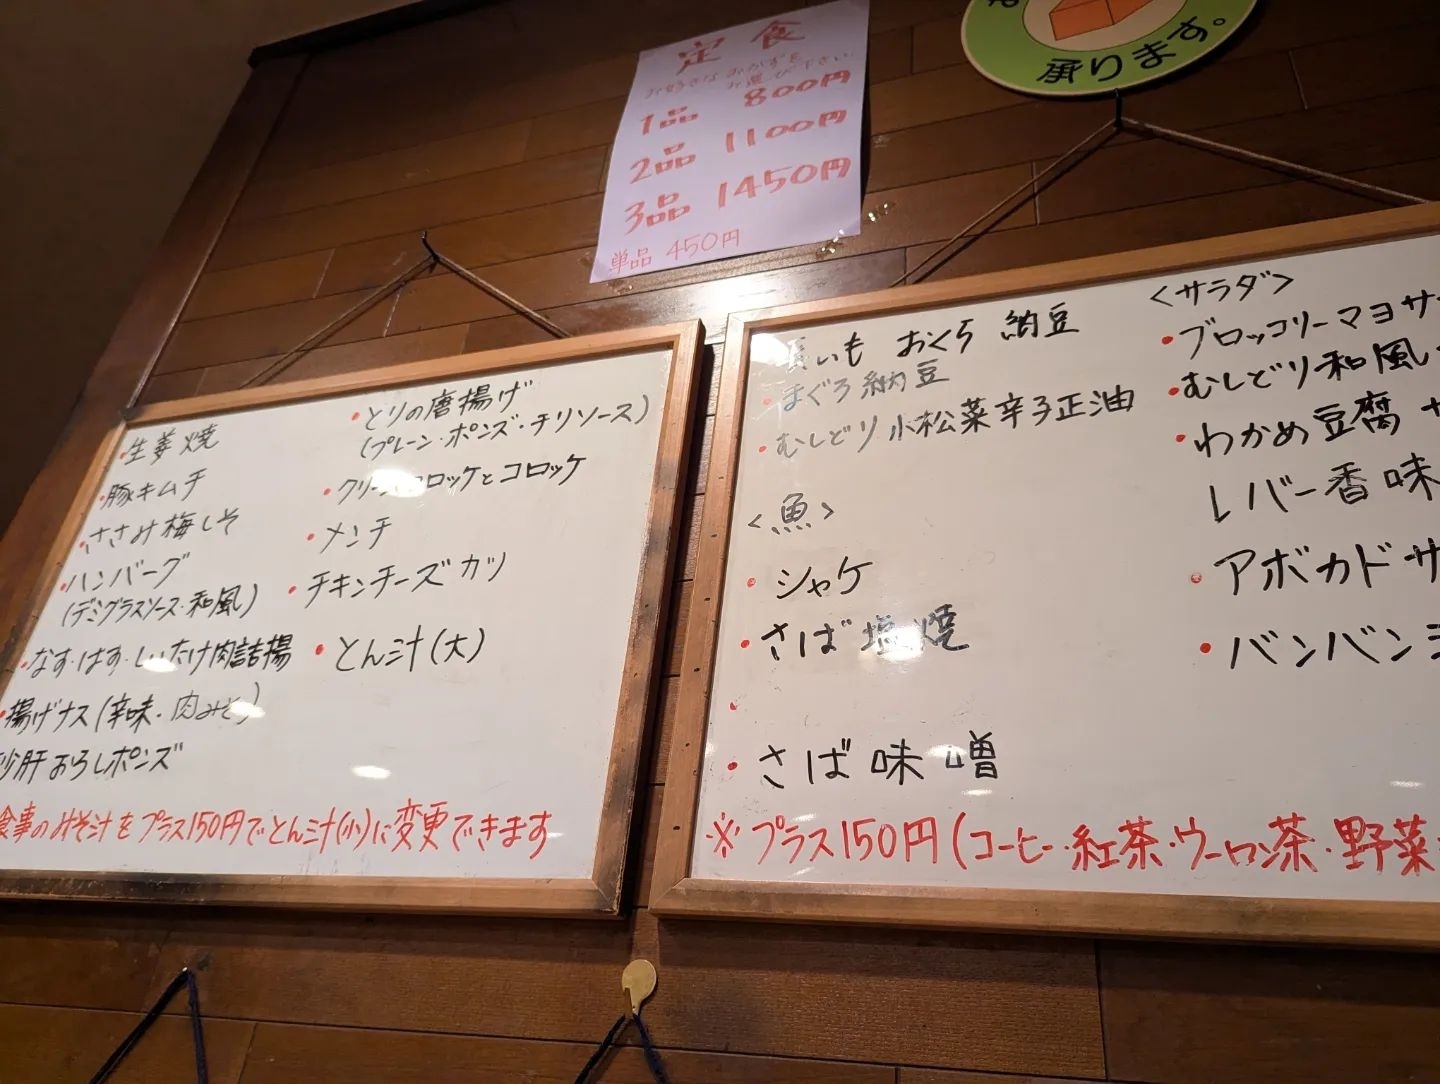 定食
お好きなおかずを
お選び下さい
1品 800円
2品 1100円
3品 1450円
単品 450円
承ります。
・生姜焼
・豚キムチ
・ささみ梅しそ
・ハンバーグ
(デミグラスソース・和風)
・なす・はす・しいたけ肉詰揚
・揚げナス(辛味・肉みそ)
砂肝おろしポンズ
・とりの唐揚げ
(プレーン・ポンズ・チリソース)
・クリームコロッケとコロッケ
・メンチ
・チキンチーズカツ
・とん汁(大)
食事のみそ汁をプラス150円でとん汁(小)に変更できます
長いも おくら 納豆
・まぐろ納豆
・むしどり小松菜辛子正油
<魚>
・シャケ
・さば塩焼
・
・さば味噌
<サラダ>
・ブロッコリーマヨサ
・むしどり和風
・わかめ豆腐サ
レバー香味
・アボカドサ
・バンバンジ
※プラス150円(コーヒー・紅茶・ウーロン茶・野菜